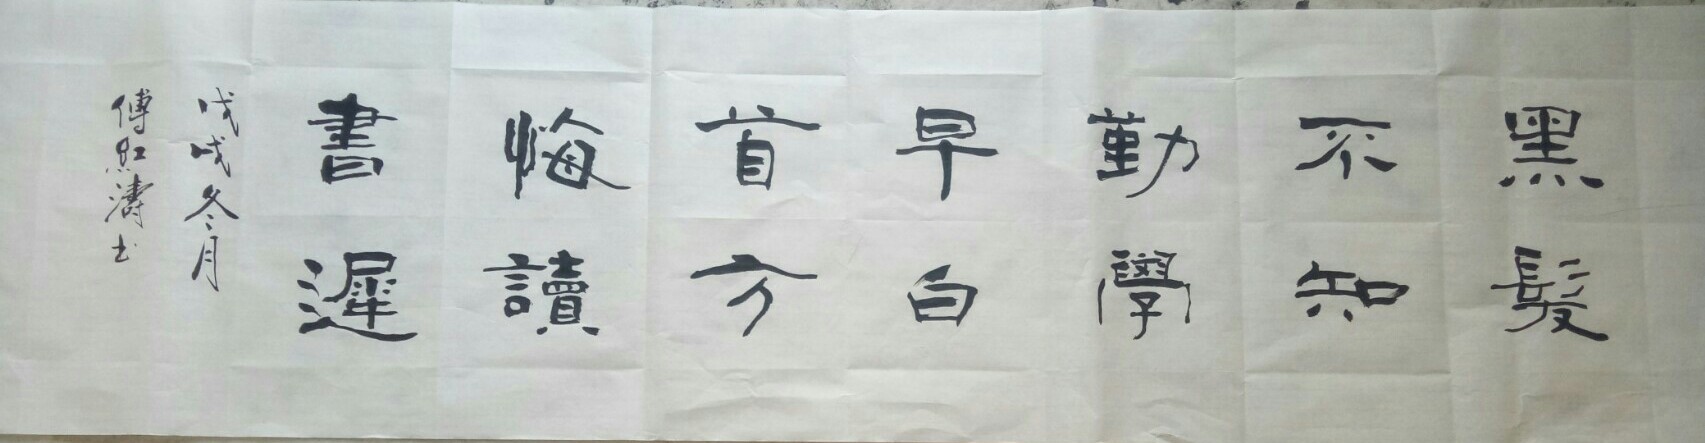 黑髮
不知
勤學
早白
首方
悔讀
書遲
戊戌冬月
傅紅濤书